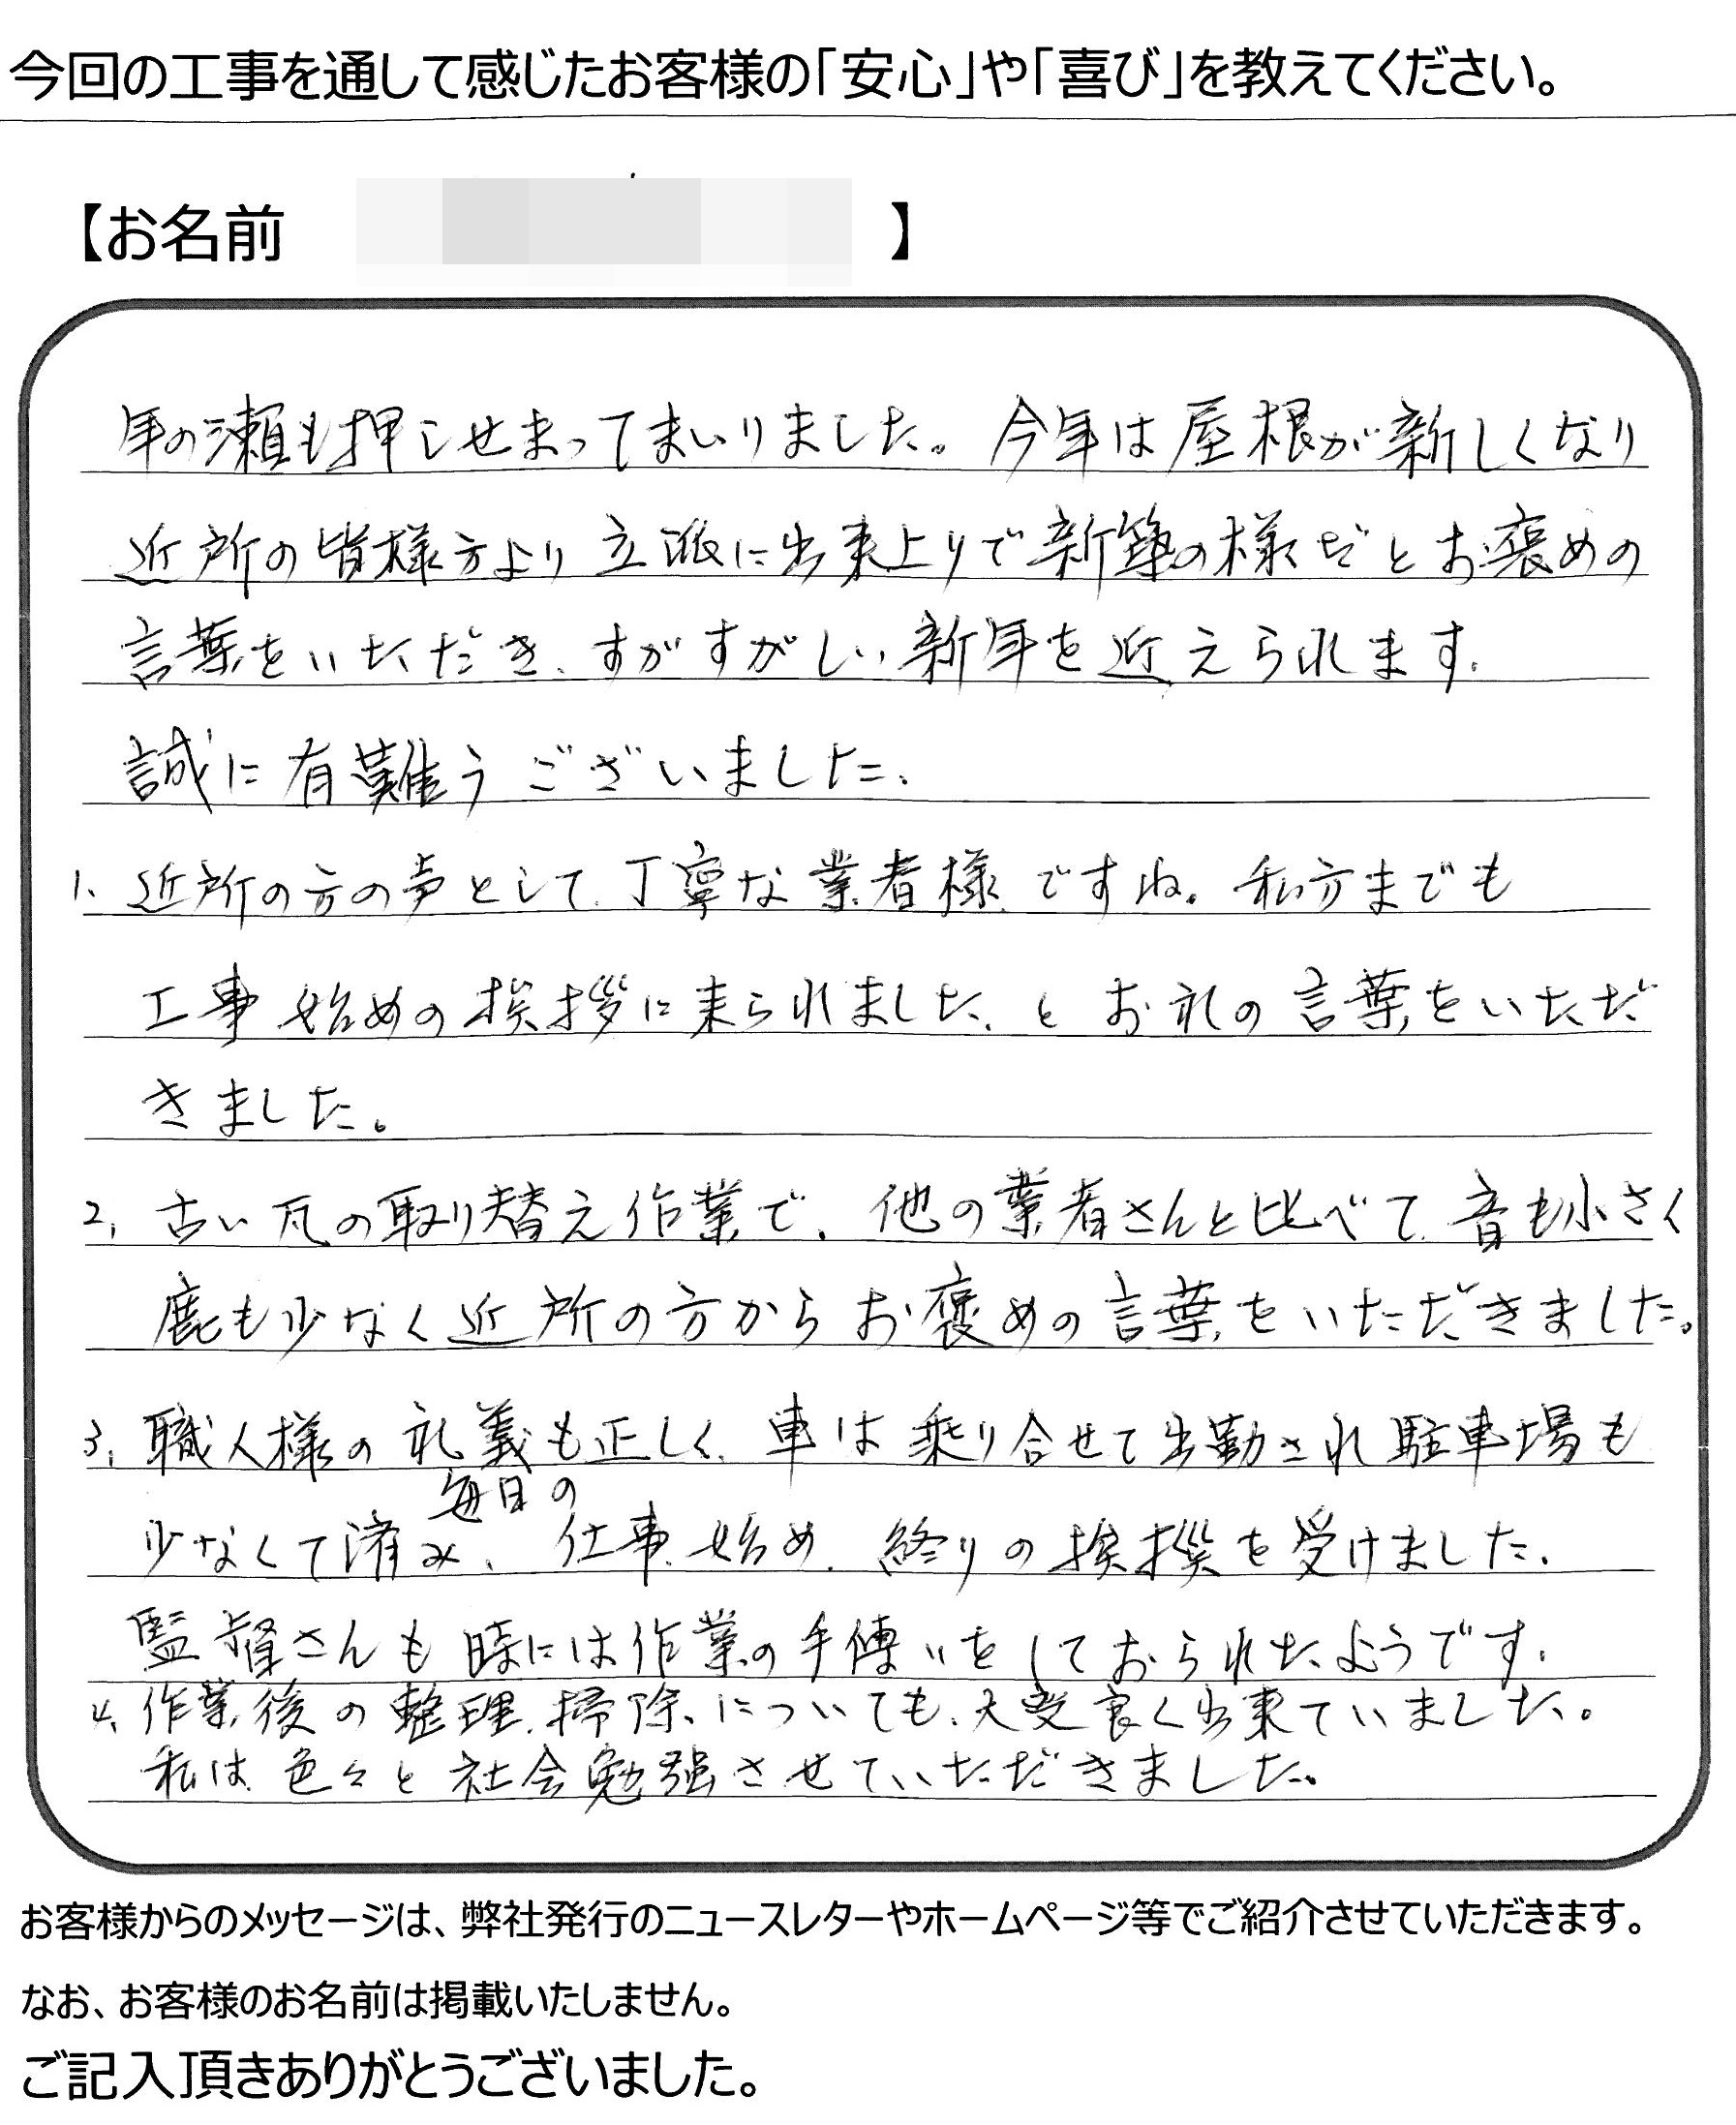 今回の工事を通して感じたお客様の「安心」や「喜び」を教えてください。
【お名前 】
年の瀬も押しせまってまいりました。今年は屋根が新しくなり
近所の皆様方より立派に出来上りで新築の様だとお褒めの
言葉をいただき、すがすがしい新年を近えられます。
誠に有難うございました。
1、近所の方の声として、丁寧な業者様ですね。私方までも
工事始めの挨拶に来られました、とお礼の言葉をいただ
きました。
2、古い瓦の取り替え作業で、他の業者さんと比べて、音も小さく
鹿も少なく近所の方からお褒めの言葉をいただきました。
3、職人様の礼義も正しく、車は乗り合せて出勤され駐車場も
少なくて済み、毎日の仕事始め、終りの挨拶を受けました。
監督さんも時には作業の手傳いをしておられたようです。
4、作業後の整理、掃除、についても、大変良く出来ていました。
私は、色々と社会勉強させていただきました。
お客様からのメッセージは、弊社発行のニュースレターやホームページ等でご紹介させていただきます。
なお、お客様のお名前は掲載いたしません。
ご記入頂きありがとうございました。